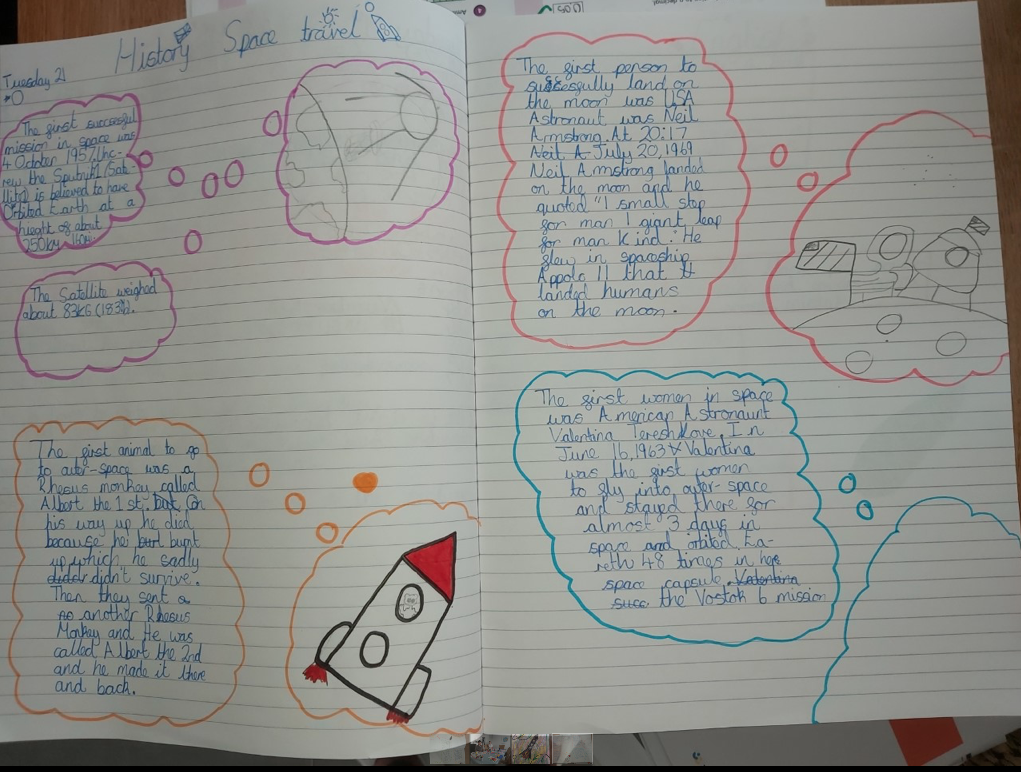 History Space travel
Tuesday 21
The first successful
mission in space was
4 October 1957. Thr-
rew the Sputnik 1 (Sate-
llite) is believed to have
Orbited Earth at a
height of about
250km
The Satellite weighed
about 83KG (183
The first animal to go
to outer-space was a
Rhesus monkey called
Albert the 1 st. But, On
his way up he died
because he burt burnt
up, which he sadly
didn't survive.
Then they sent a
another Rhesus
Monkey and He was
called Albert the 2nd
and he made it there
and back.
The first person to
successfully land on
the moon was USA
Astronaut was Neil
Armstrong. At 20:17
Neil A July 20, 1969
Neil Armstrong landed
on the moon and he
quoted "1 small step
for man 1 giant leap
for man kind". He
flew in spaceship
Appolo 11 that
landed humans
on the moon.
The first women in space
was American Astronaunt
Valentina Tereshkove, In
June 16, 1963 Valentina
was the first women
to fly into outer-space
and stayed there for
almost 3 days in
space and orbited Ea-
reth 48 times in her
space capsule. Valentina
succ the Vostok 6 mission